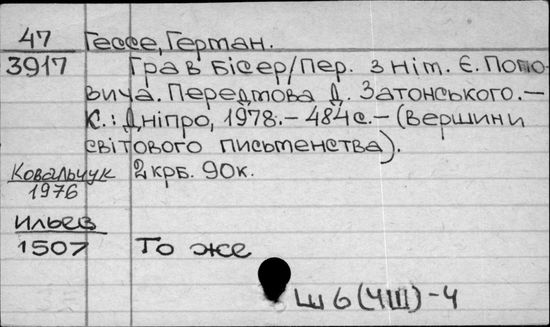 47 Гессе, Герман.
3917 Гра в бісер/Пер. з нім. Є. Попо-
вича. Передмова Д. Затонського.–
К.: Дніпро, 1978.– 484с.– (Вершини
світового письменства).
Ковальчук 2 крб. 90к.
1976
Ильев
1507 То же
Ш6(4Ш)-4